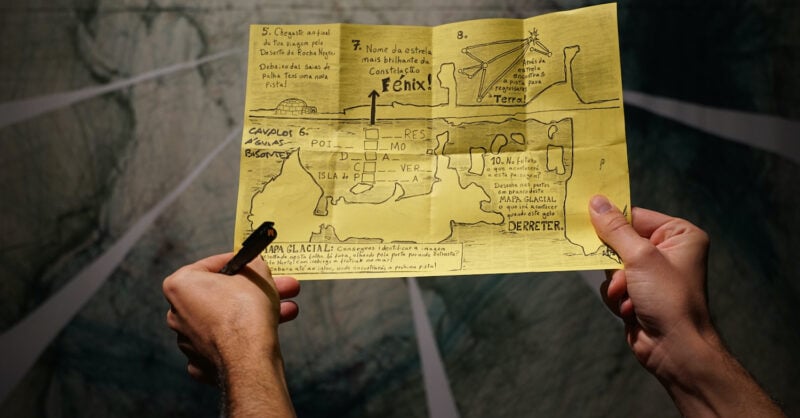 5. Chegaste ao final
da tua viagem pelo
Deserto da Rocha Negra.
Debaixo das saias de
palha tens uma nova
pista!
7. Nome da estrela
mais brilhante da
Constelação
Fénix!
8.
Depois da
estrela
encontras
a pista para
regressares
à
Terra!
CAVALOS 6.
ÁGUIAS
BISONTES
RES
POI MO
D A
C VER
ISLA do P A
10. No futuro
o que acontecerá
a esta paisagem?
Desenha nas partes
em branco deste
MAPA GLACIAL
o que irá acontecer
quando este gelo
DERRETER.
MAPA GLACIAL: Consegues identificar a imagem
nesta folha
mar!
a próxima pista!